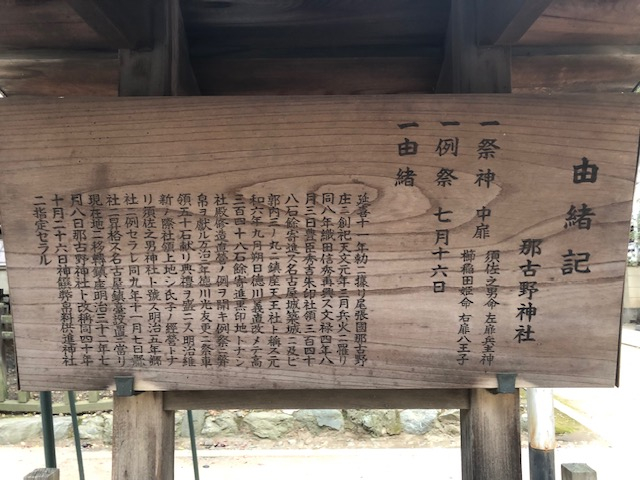 由緒記
那古野神社
一祭神 中扉 須佐之男命 左扉兵主神
櫛稲田姫命 右扉八王子
一例祭 七月十六日
一由緒
延喜十一年勅ニ據リ尾張國那古野
庄ニ創祀天文元年三月兵火ニ罹リ
同八年織田信秀再興ス文禄四年八
月三日豊臣秀吉朱印社領三百四十
八石餘寄進ス名古屋城築城ニ及ビ
郭内三ノ丸ニ鎮座天王社ト稱ス元
和六年九月朔日徳川義直改メテ高
三百四十八石餘寄進黒印地トナシ
社殿修造遷宮ノ例ヲ開キ例祭ニ幣
帛ヲ献ル万治二年徳川光友更ニ祭車
領五十石献リ興禮ヲ盛ニス明治維
新ノ際社領上地シ氏子ノ經營トナ
リ須佐之男神社ト號ス明治五年郷
社ニ例セラレ同九年十一月七日縣
社ニ昇格ス名古屋鎮臺設置ニ當リ
現在地ニ移轉鎮座明治三十二年七
月八日那古野神社ト改稱同四十年
十月二十六日神饌幣帛料供進神社
ニ指定セラル